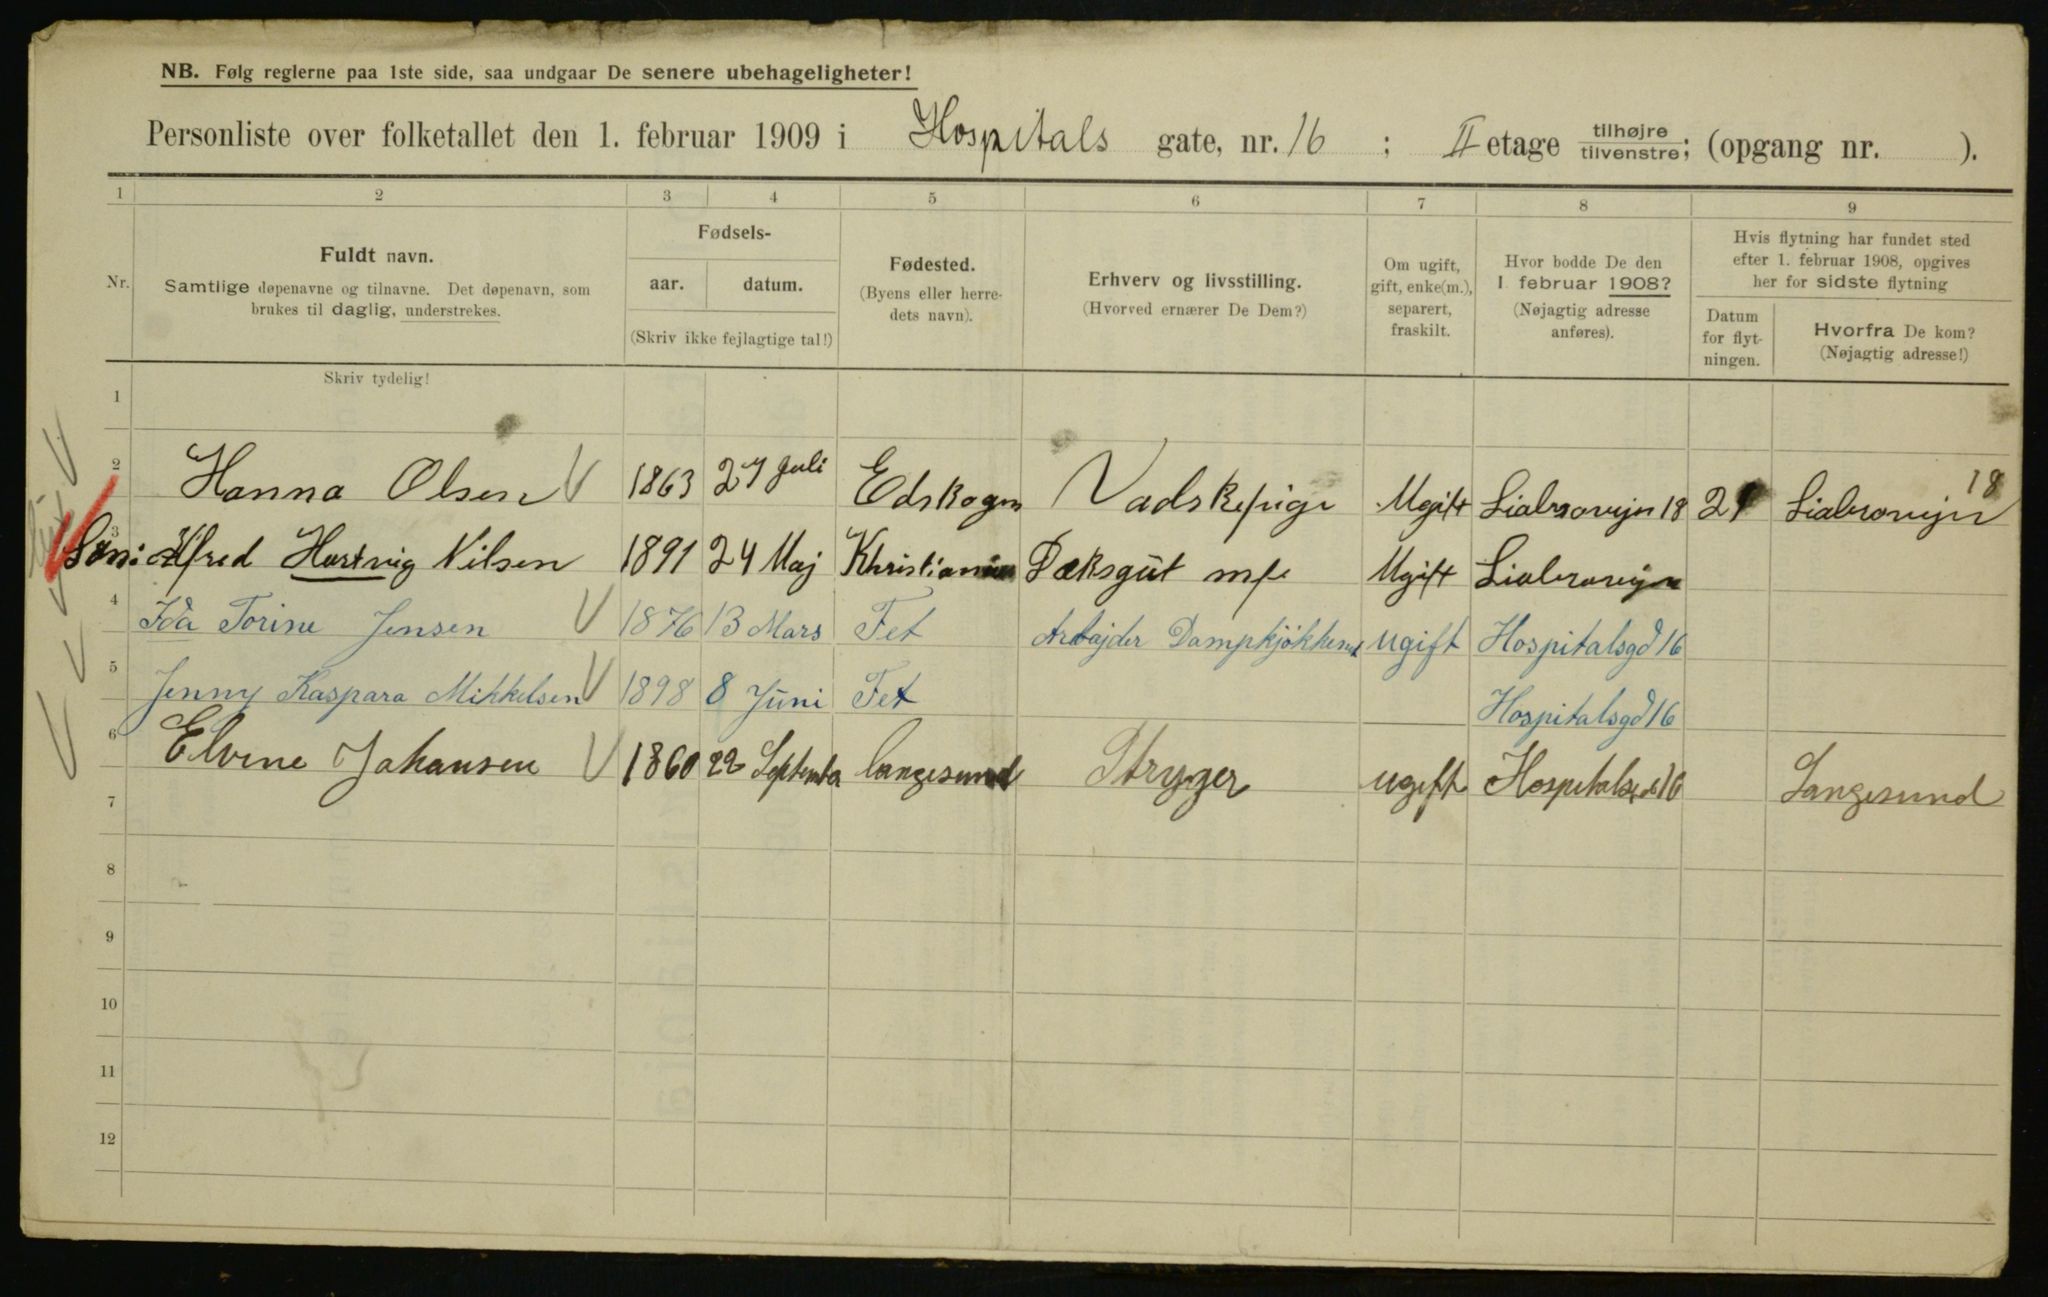 NB. Følg reglerne paa 1ste side, saa undgaar De senere ubehageligheter!
Personliste over folketallet den 1. februar 1909 i Hospitals gate, nr. 16 ; II etage tilhøjre tilvenstre; (opgang nr. ).
1 2 3 4 5 6 7 8 9
Nr.
Fuldt navn.
Samtlige døpenavne og tilnavne. Det døpenavn, som
brukes til daglig, understrekes.
Fødsels-
aar. datum.
(Skriv ikke fejlagtige tal!)
Fødested.
(Byens eller herre-
dets navn).
Erhverv og livsstilling.
(Hvorved ernærer De Dem?)
Om ugift,
gift, enke(m.),
separert,
fraskilt.
Hvor bodde De den
1 februar 1908?
(Nøjagtig adresse
anføres).
Hvis flytning har fundet sted
efter 1. februar 1908, opgives
her for sidste flytning
Datum
for flyt-
ningen.
Hvorfra De kom?
(Nøjagtig adresse!)
Skriv tydelig!
1
2 Hanna Olsen 1863 27 Juli Edskogen Ugift Liabrovejn 18 Liabrovejn 18
3 Alfred Hartvig Nilsen 1891 24 Maj Khristiania Dæksgut Ugift Liabrovejn
4 Ida Torine Jensen 1876 13 Mars Fet Arbajder Dampkjøkkenet ugift Hospitalsgd 16
5 Jenny Kaspara Mikkelsen 1898 8 Juni Fet Hospitalsgd 16
6 Elvine Johansen 1860 22 September Langesund Stryger ugift Hospitalsgd 16 Langesund
7
8
9
10
11
12